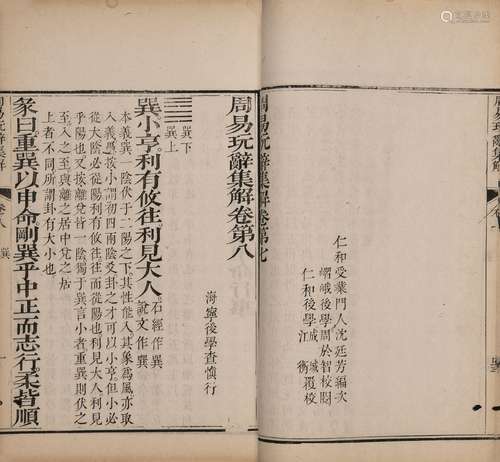 周易玩辭集解
仁和受業門人沈廷芳編次
嶍峨後學周於智校閱
成城
仁和後學 覆校
江衡
周易玩辭集解卷第七
周易玩辭集解卷第八
海寧後學查慎行
巽下
巽上
巽小亨利有攸往利見大人
石經作巽
說文作
本義巽一陰伏于二陽之下其性能入其象為風亦取
入義愚按小謂初四兩陰爻卦之才可以小亨但小必
從大陰必從陽利有攸往往而從陽也利見大人利見
乎陽也又按離兌皆一陰獨于巽言小者重巽則伏之
至入之至與離之居中兌之居
上者不同所謂卦有大小也
彖曰重巽以申命剛巽乎中正而志行柔皆順
周易玩辭集解
卷八
巽